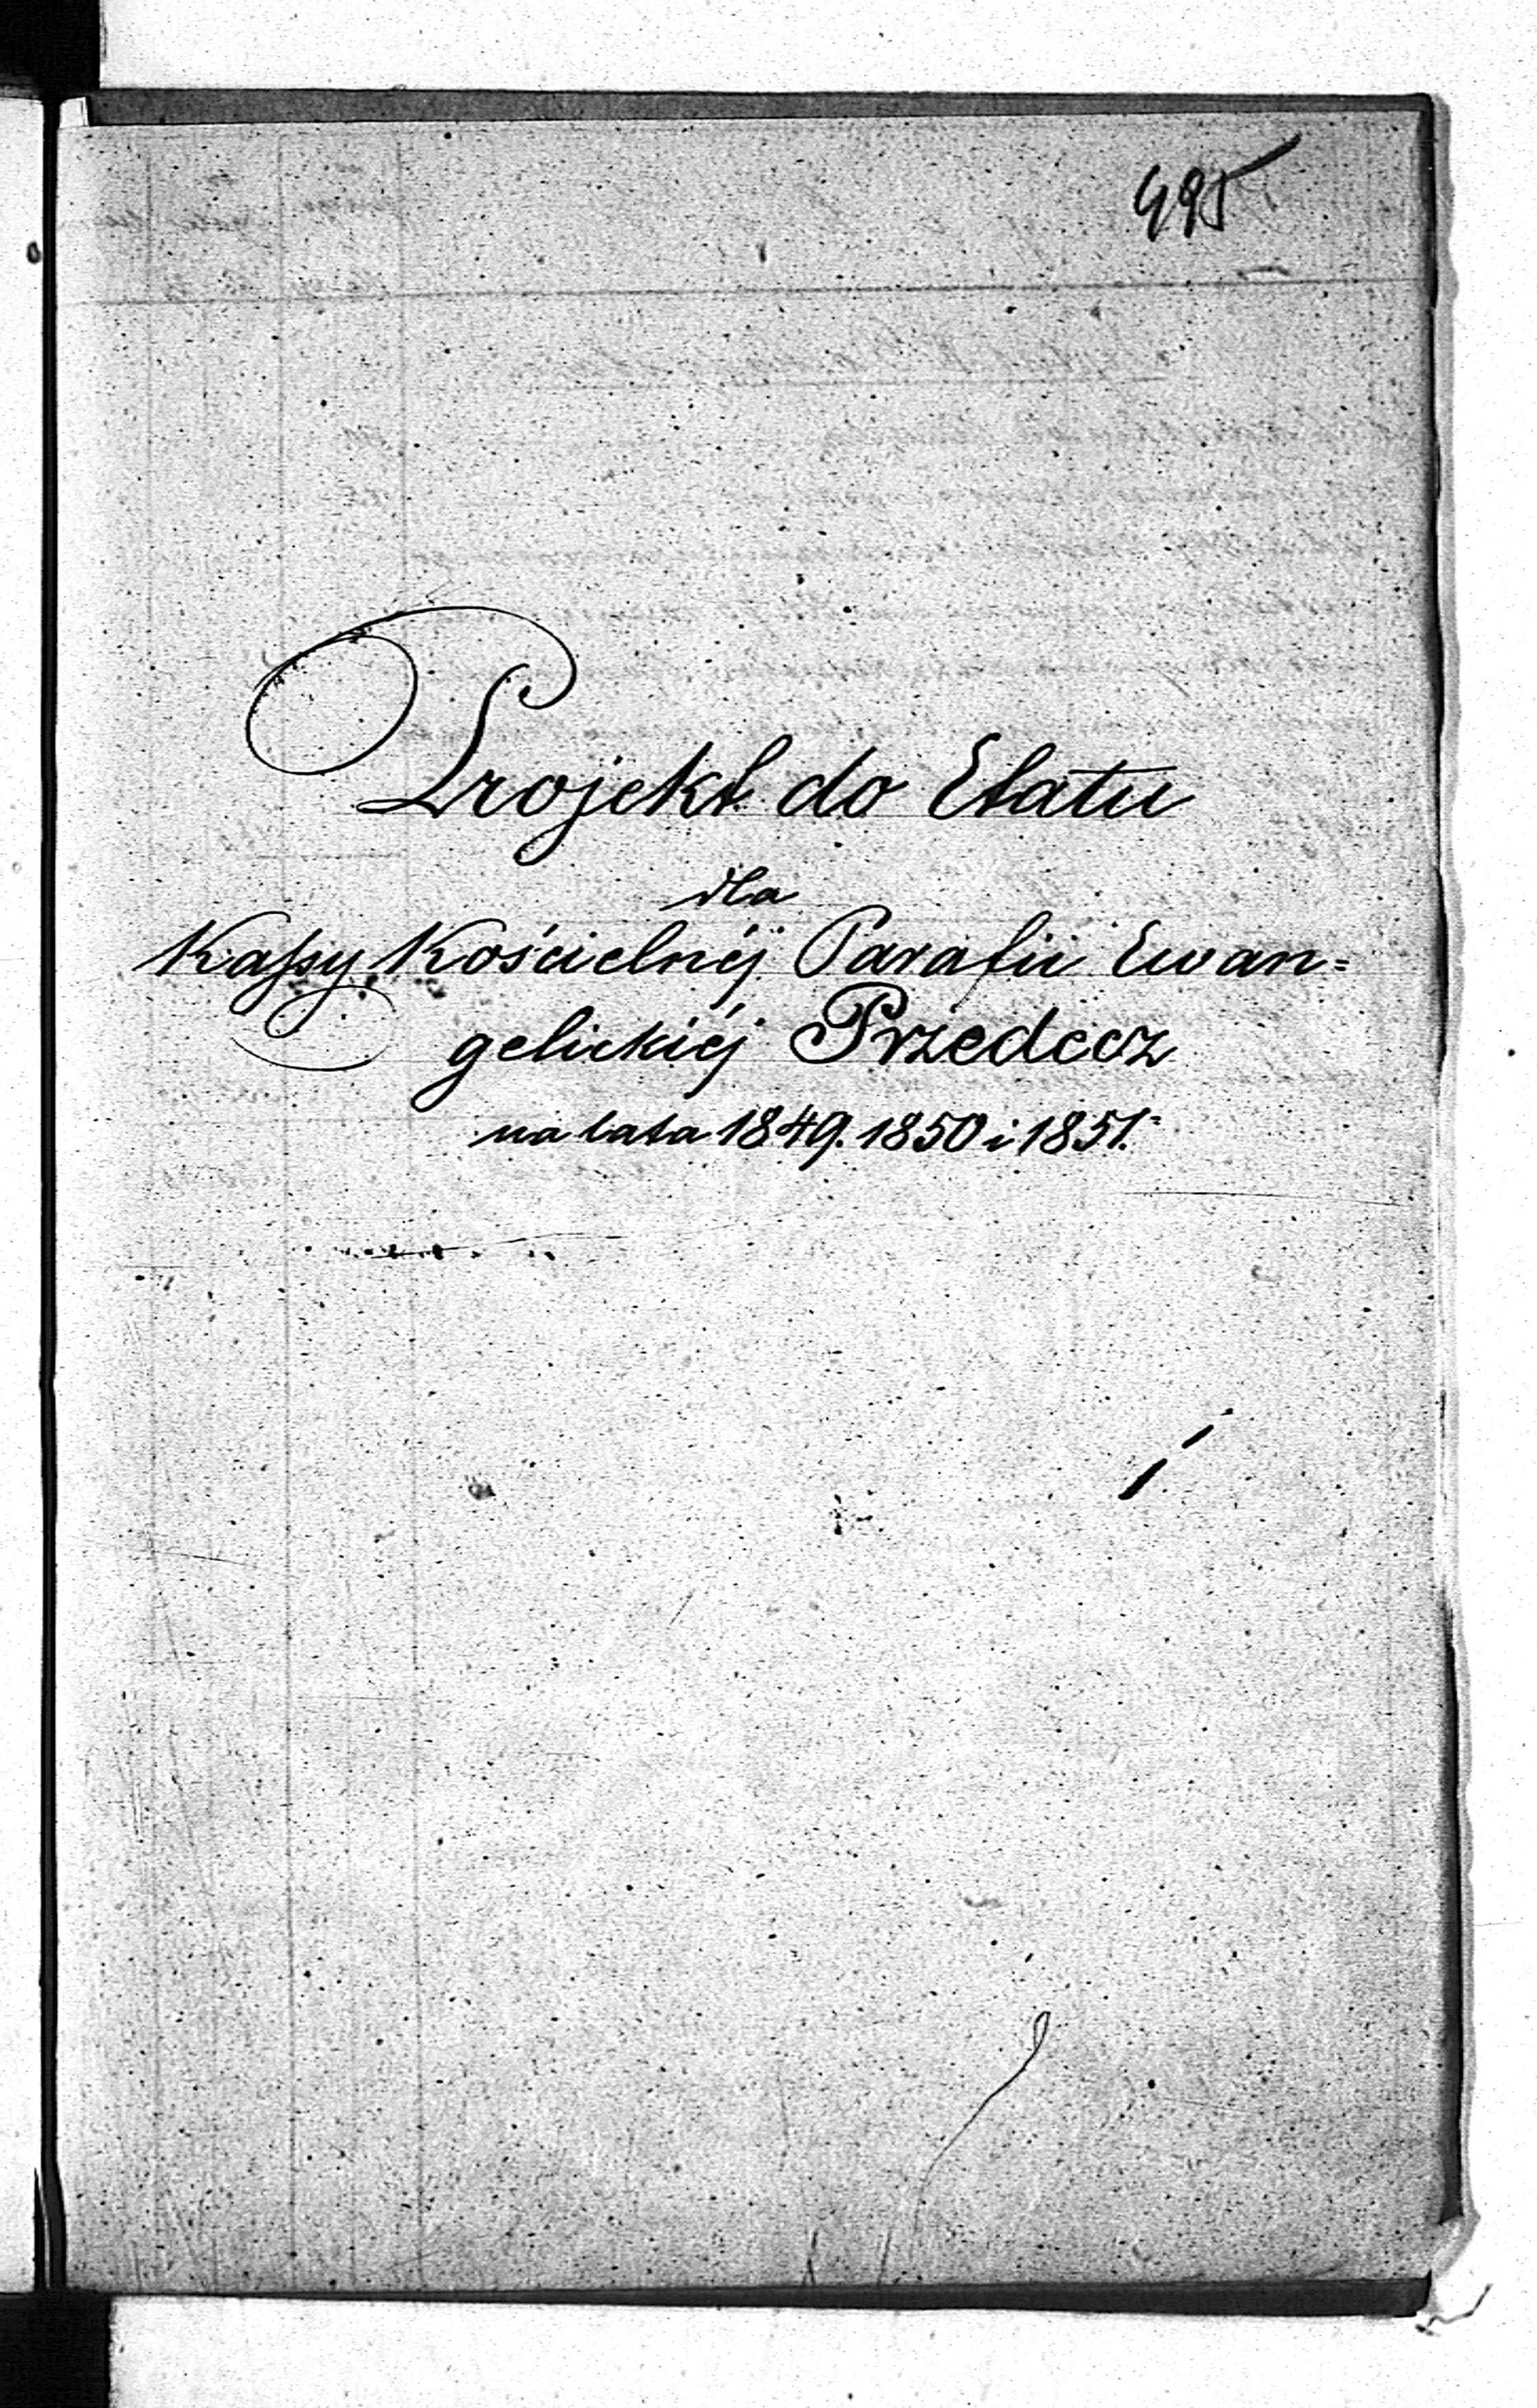 495
Projekt do Etatu
dla
Kaſsy Kościelnéj Parafii Ewan=
gelickiéj Przedecz
na lata 1849. 1850 i 1851.